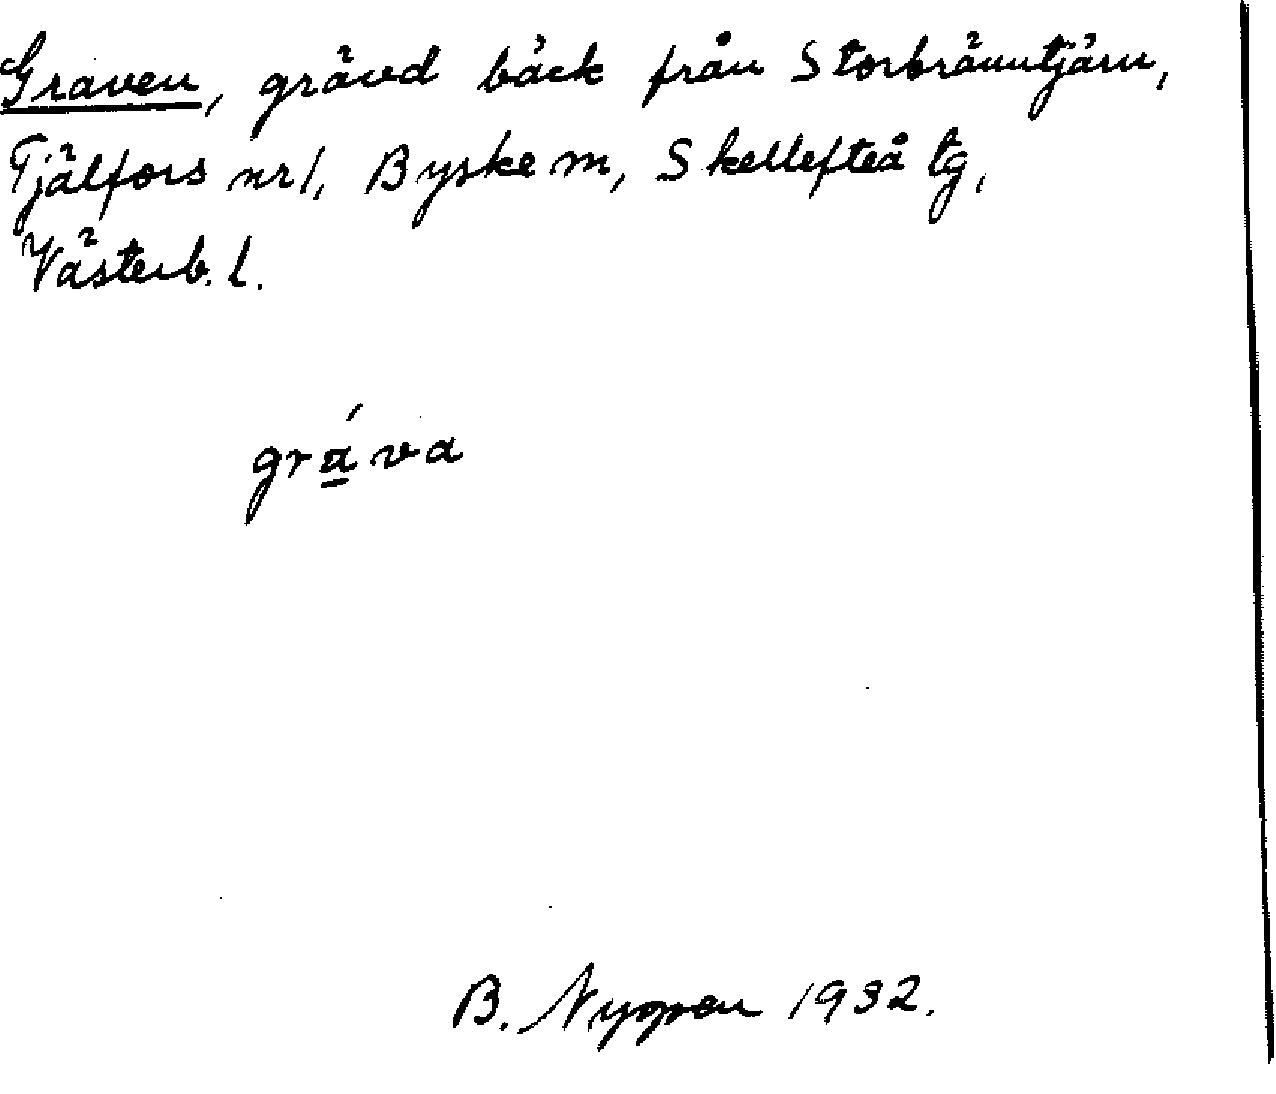 Graven, grävd bäck från Storbränntjärn,
Tjälfors nr 1, Byske m, Skellefteå tg,
Västerb. l.
gra̱´va
B. 1932.